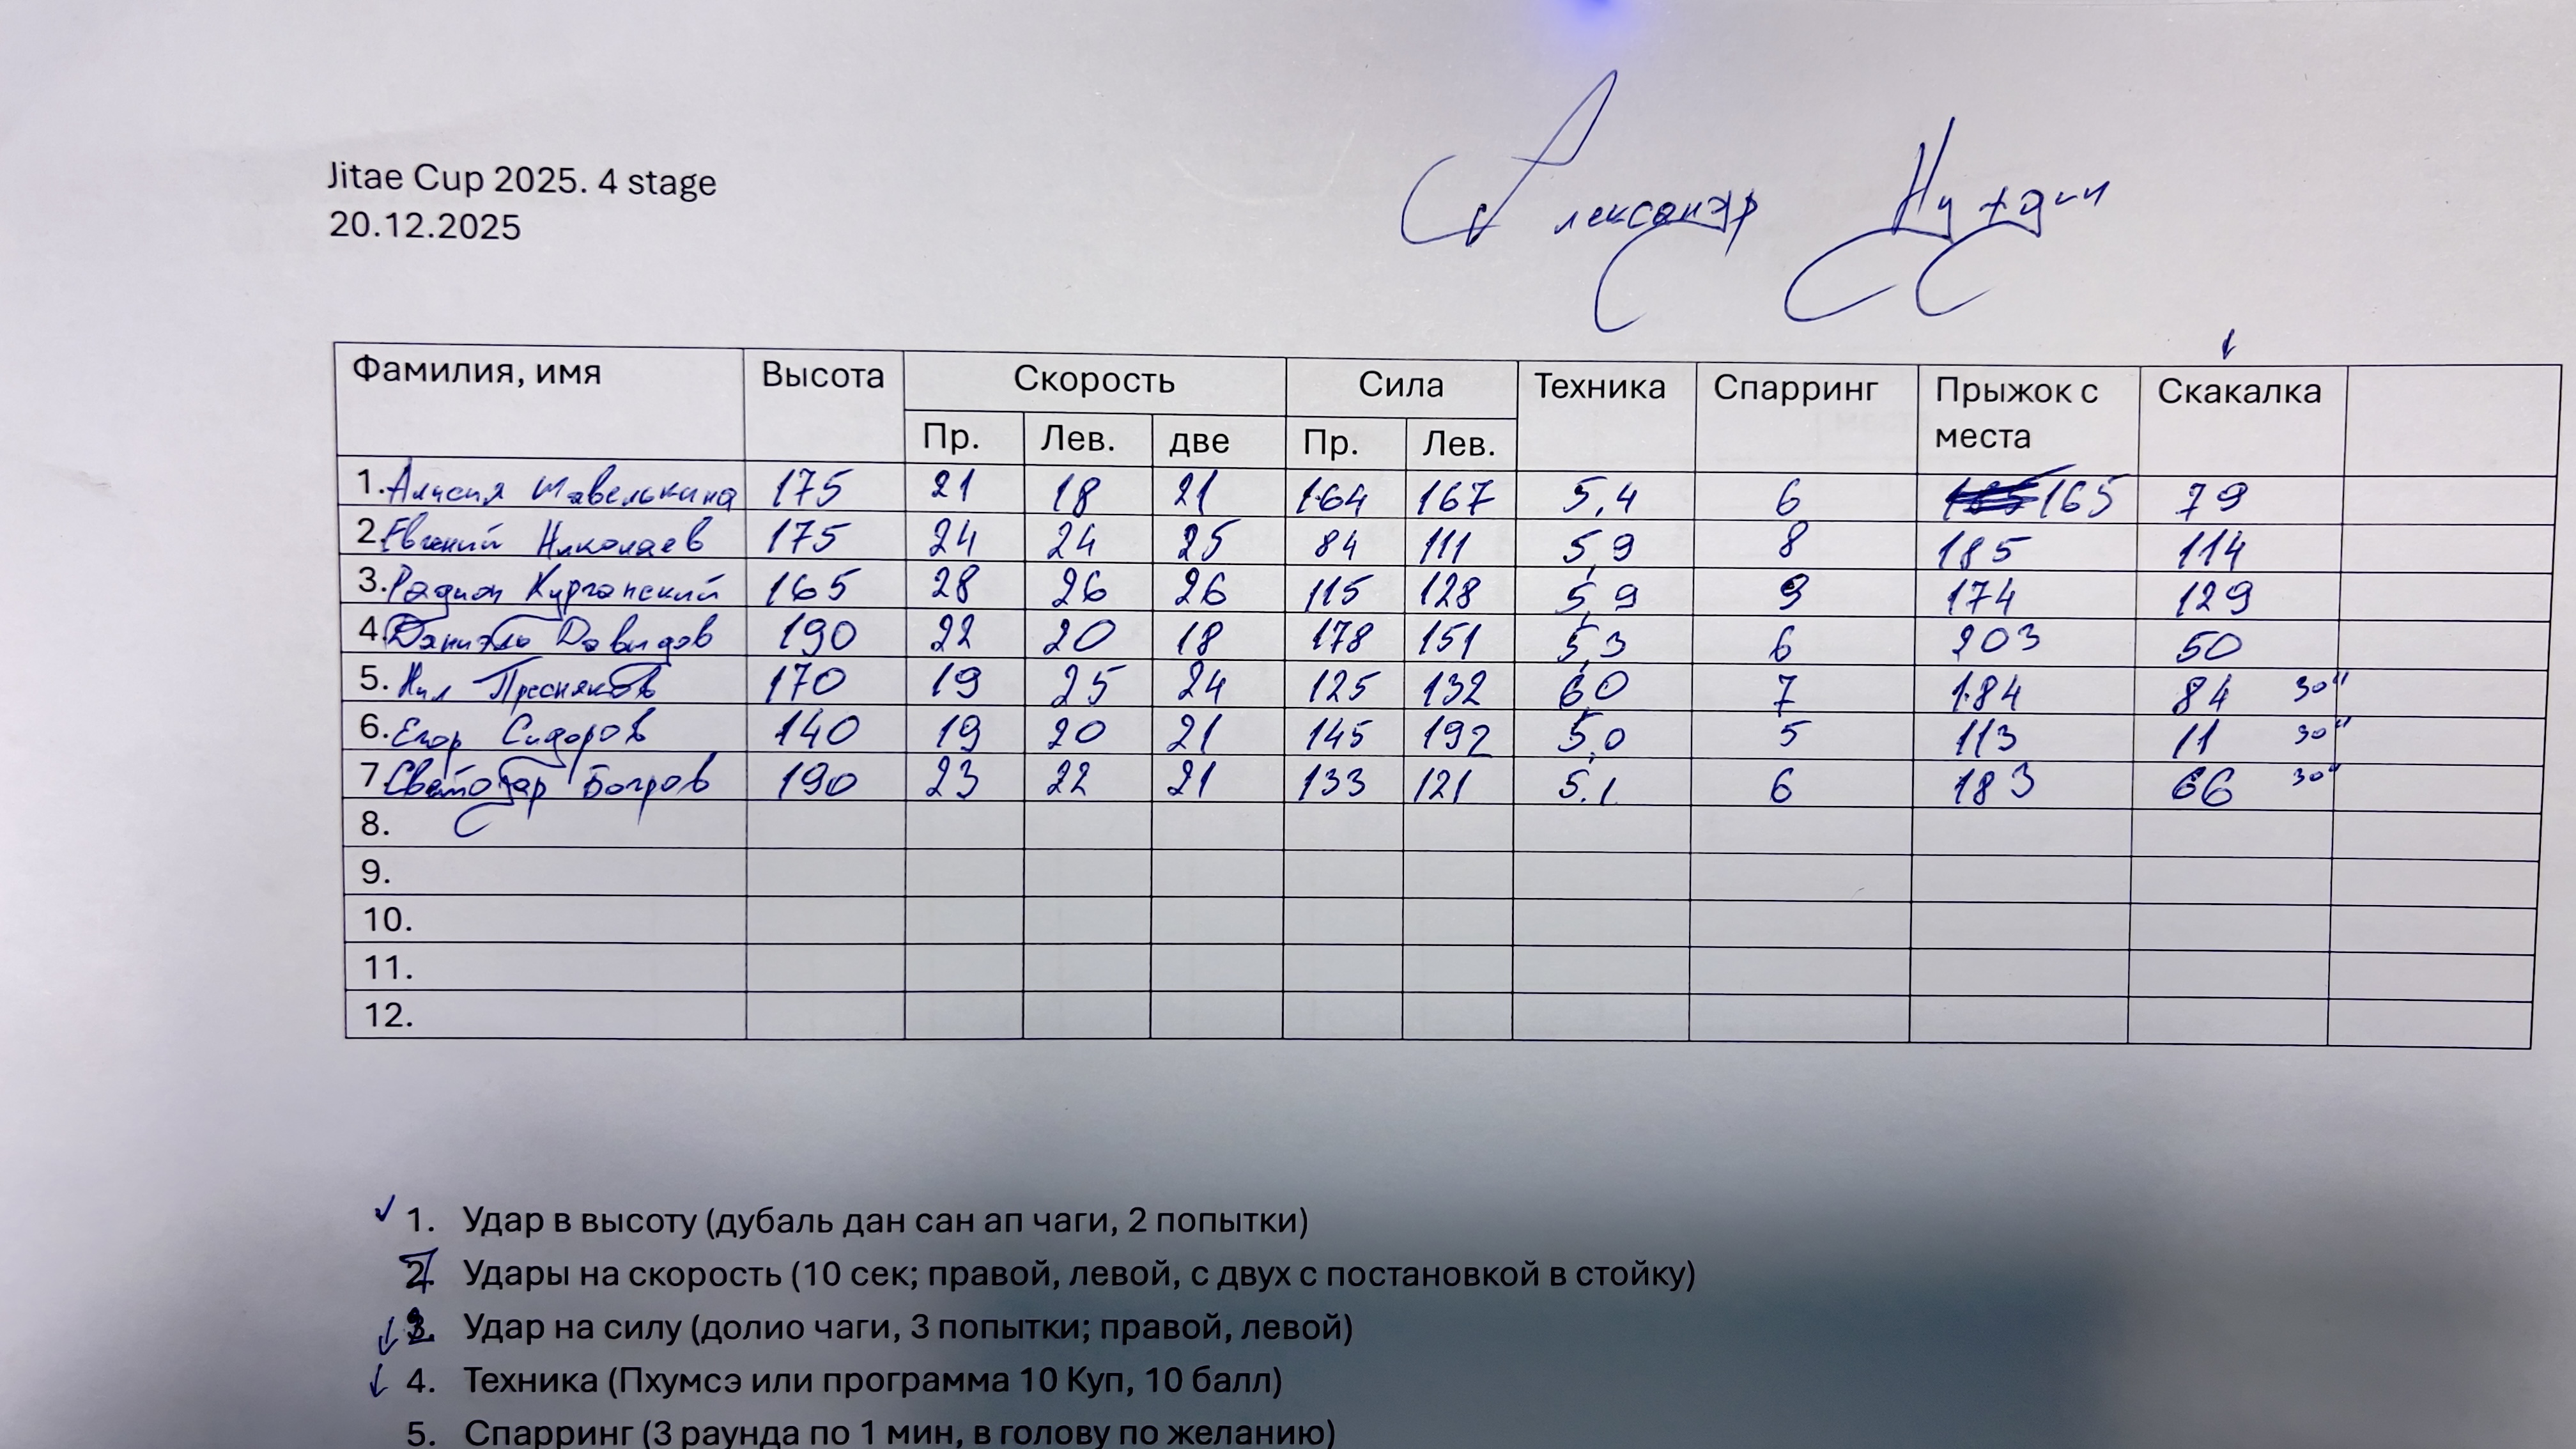 Jitae Cup 2025. 4 stage
20.12.2025
Александр
Фамилия, имя Высота Скорость Сила Техника Спарринг Прыжок с места Скакалка
Пр. Лев. две Пр. Лев.
1. Алисия Шавелькина 175 21 18 21 164 167 5,4 6 165 79
2. Евгений Николаев 175 24 24 25 84 111 5,9 8 185 114
3. Радион Курганский 165 28 26 26 115 128 5,9 9 174 129
4. Даниэль Давидов 190 22 20 18 178 151 5,3 6 203 50
5. Нил Пресняков 170 19 25 24 125 132 6,0 7 184 84 30"
6. Егор Сидоров 140 19 20 21 145 192 5,0 5 113 11 30"
7. Светозар Богров 190 23 22 21 133 121 5.1 6 183 66 30"
8.
9.
10.
11.
12.
1. Удар в высоту (дубаль дан сан ап чаги, 2 попытки)
2. Удары на скорость (10 сек; правой, левой, с двух с постановкой в стойку)
3. Удар на силу (долио чаги, 3 попытки; правой, левой)
4. Техника (Пхумсэ или программа 10 Куп, 10 балл)
5. Спарринг (3 раунда по 1 мин, в голову по желанию)